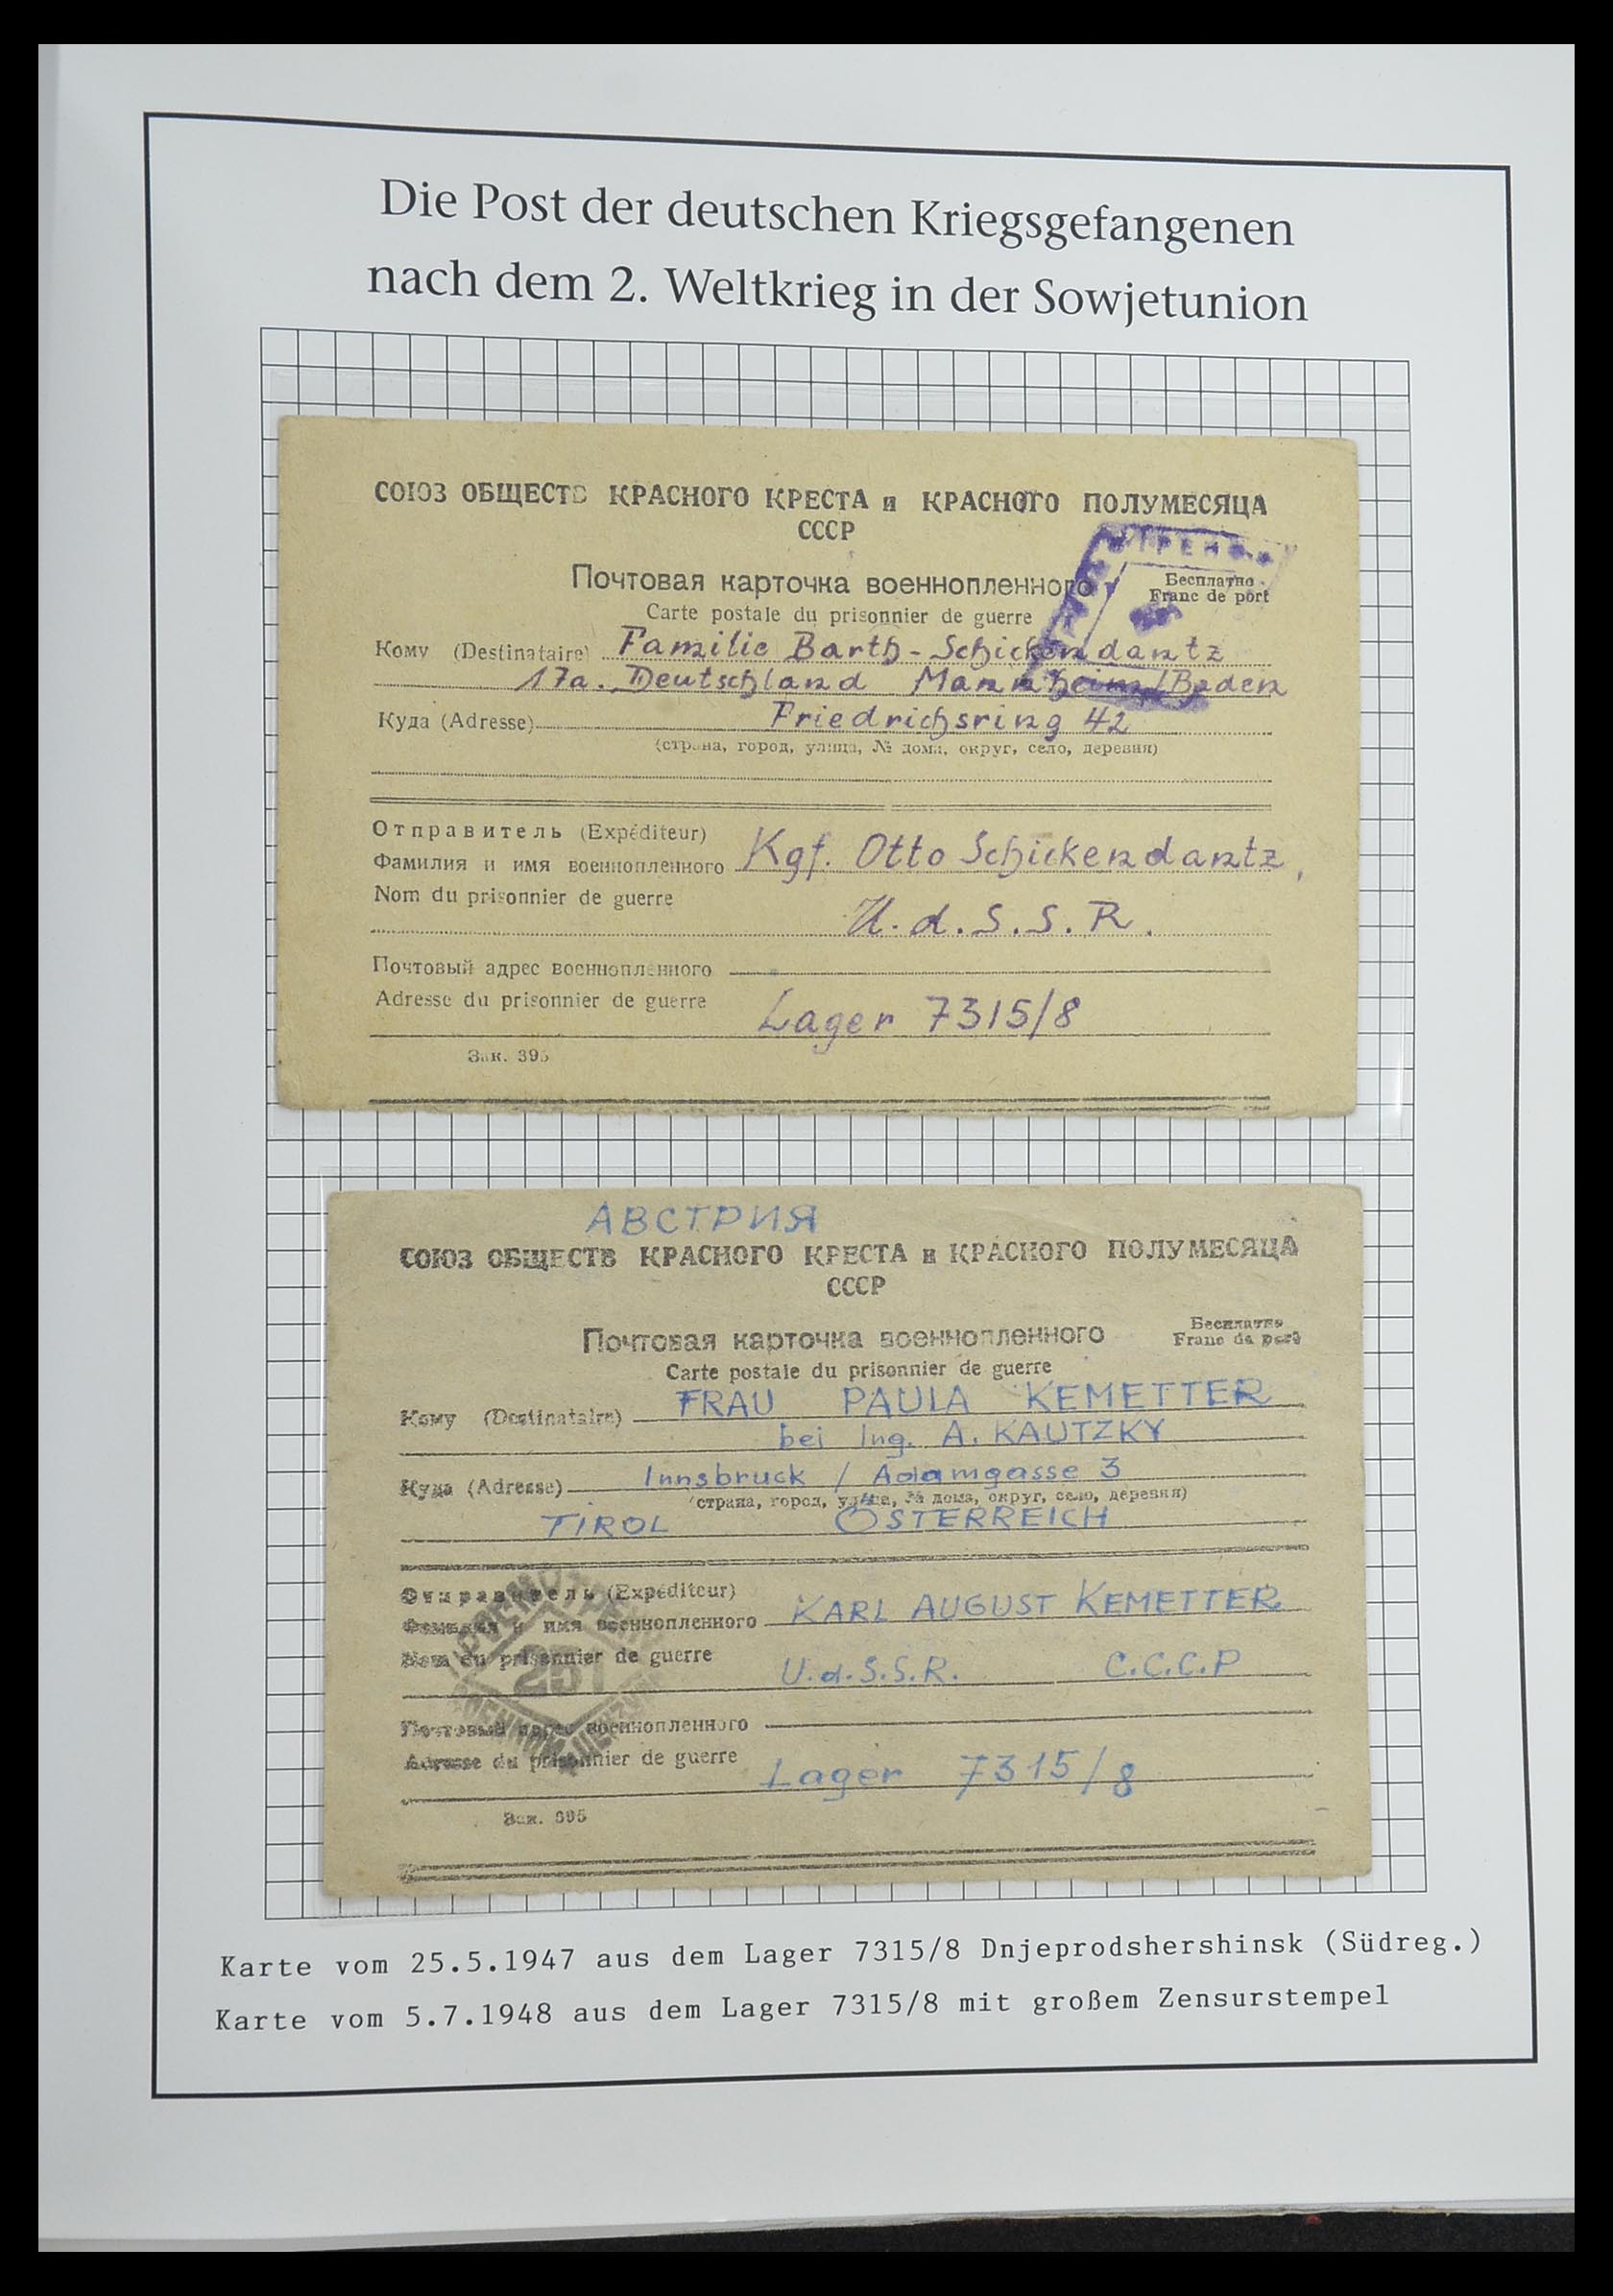 Die Post der deutschen Kriegsgefangenen
nach dem 2. Weltkrieg in der Sowjetunion
СОЮЗ ОБЩЕСТВ КРАСНОГО КРЕСТА и КРАСНОГО ПОЛУМЕСЯЦА
СССР
Почтовая карточка военнопленного
Бесплатно
Franc de port
Carte postale du prisonnier de guerre
Кому (Destinataire) Familie Barth-Schickendantz
17a. Deutschland Mannheim/Baden
Куда (Adresse) Friedrichsring 42
(страна, город, улица, № дома, округ, село, деревня)
Отправитель (Expéditeur)
Фамилия и имя военнопленного Kgf. Otto Schickendantz,
Nom du prisonnier de guerre
U.d.S.S.R.
Почтовый адрес военнопленного
Adresse du prisonnier de guerre Lager 7315/8
Зак. 395
АВСТРИЯ
СОЮЗ ОБЩЕСТВ КРАСНОГО КРЕСТА и КРАСНОГО ПОЛУМЕСЯЦА
СССР
Почтовая карточка военнопленного
Бесплатно
Franc de port
Carte postale du prisonnier de guerre
Кому (Destinataire) FRAU PAULA KEMETTER
bei Ing. A. KAUTZKY
Куда (Adresse) Innsbruck / Adamgasse 3
(страна, город, улица, № дома, округ, село, деревня)
TIROL ÖSTERREICH
Отправитель (Expéditeur)
Фамилия и имя военнопленного KARL AUGUST KEMETTER
Nom du prisonnier de guerre
U.d.S.S.R. C.C.C.P
Почтовый адрес военнопленного
Adresse du prisonnier de guerre Lager 7315/8
Зак. 395
Karte vom 25.5.1947 aus dem Lager 7315/8 Dnjeprodshershinsk (Südreg.)
Karte vom 5.7.1948 aus dem Lager 7315/8 mit großem Zensurstempel